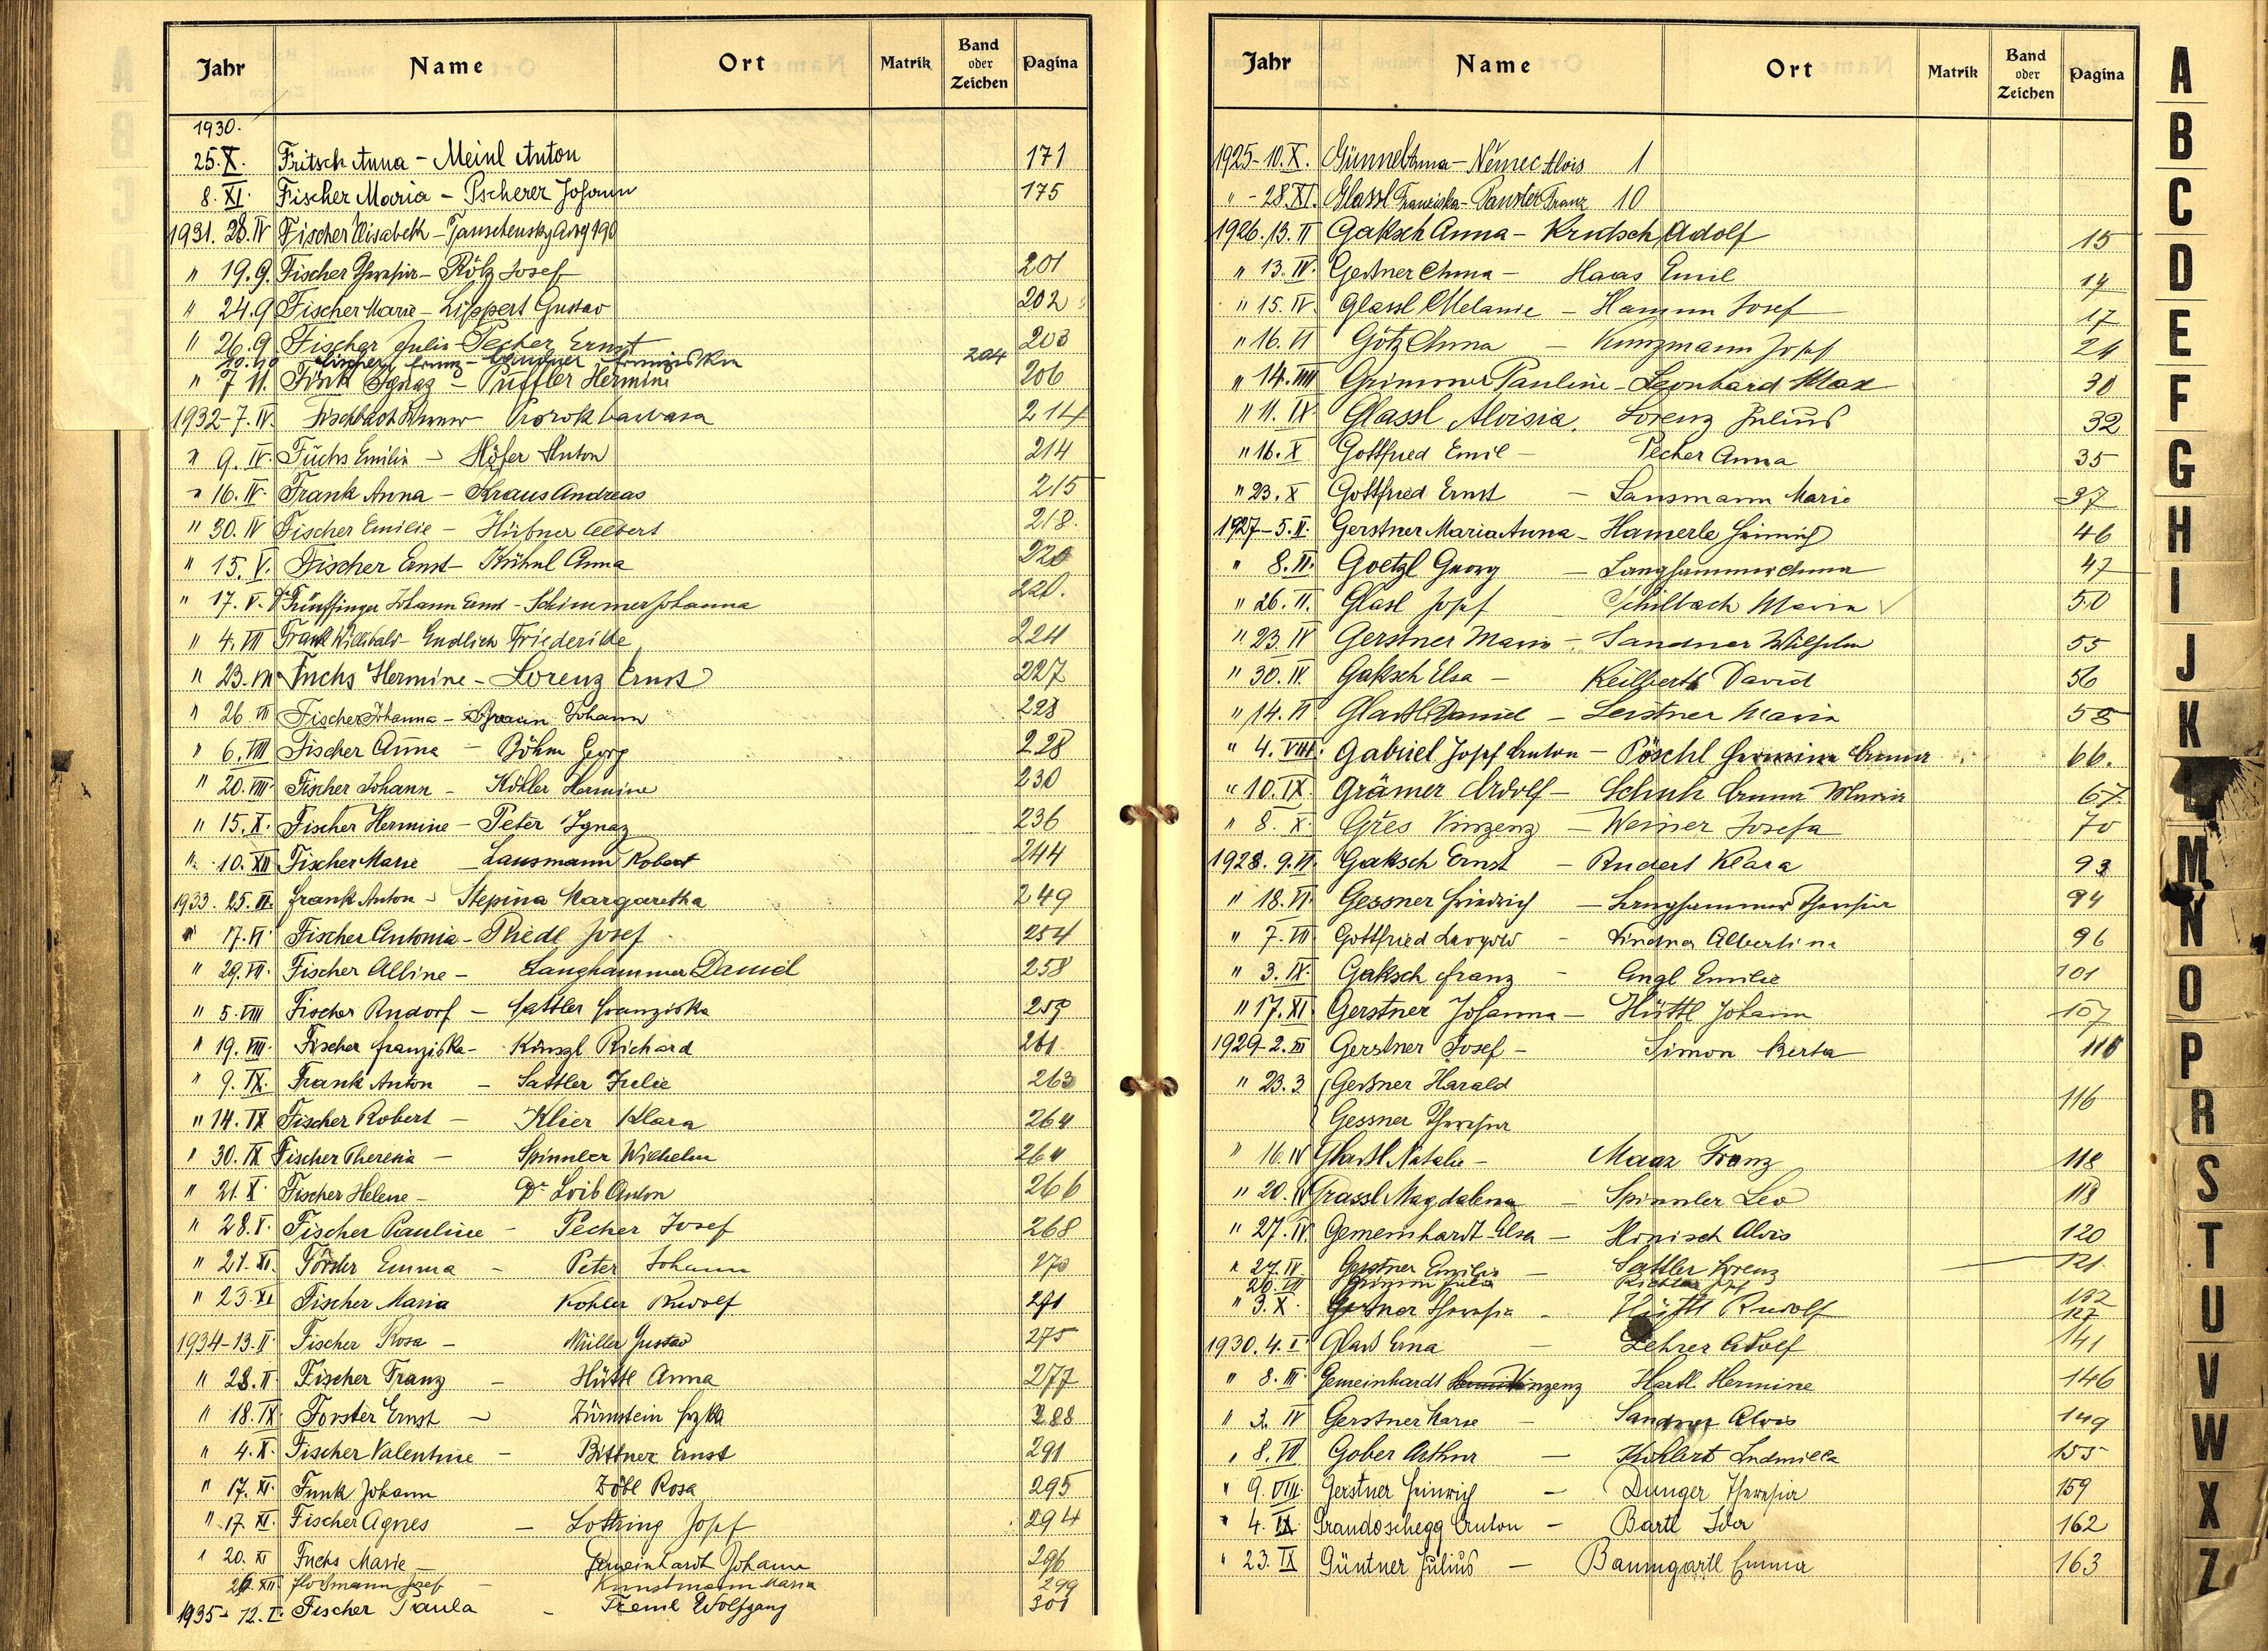 Jahr Name Ort Matrik Band oder Zeichen Pagina
1930.
25. X. Fritsch Anna – Meinl Anton 171
8. XI. Fischer Maria – Pscherer Johann 175
1931. 28. IV Fischer Elisabeth – 190
" 19. 9. Fischer Theresia – Rölz Josef 201
" 24. 9 Fischer Marie – Lippert Gustav 202
" 26. 9 Fischer Julia – Pecher Ernst 203
Fischer Franz – Lindner Franziska 204
" 7 11. Fink Ignaz – Puffler Hermine 206
1932 – 7. IV. Prorok Barbara 214
" 9. IV. Fuchs Emilie – Höfer Anton 214
" 16. IV. Frank Anna – Kraus Andreas 215
" 30. IV Fischer Emilie – Hübner Albert 218.
" 15. V. Fischer Ernst – Kühnl Anna 220
" 17. V. Johann Ernst – Schimmer Johanna 220.
" 4. VII Frank Willibald – Endlich Friederike 224
" 23. VII Fuchs Hermine – Lorenz Ernst 227
" 26. VII Fischer Johanna – Braun Johann 228
" 6. VIII Fischer Anna – Böhm Georg 228
" 20. VIII. Fischer Johann – Köhler Hermine 230
" 15. X. Fischer Hermine – Peter Ignaz 236
" 10. XII Fischer Marie – Lausmann Robert 244
1933. 25. II. Frank Anton – Stepina Margaretha 249
" 17. VI Fischer Antonia – Riedl Josef 254
" 29. VII. Fischer Albine – Langhammer Daniel 258
" 5. VIII Fischer Rudorf – Sattler Franziska 259
" 19. VIII. Fischer Franziska – Künzl Richard 261
" 9. IX. Frank Anton – Sattler Julie 263
" 14. IX Fischer Robert – Klier Klara 264
" 30. IX Fischer Theresia – Spinnler Wilhelm 264
" 21. X Fischer Helene – Dr. Loib Anton 266
" 28. X. Fischer Pauline – Pecher Josef 268
" 21. XI. Förster Emma – Peter Johann 270
" 23. XI Fischer Maria Kohler Rudolf 271
1934 – 13. II Fischer Rosa – Müller Gustav 275
" 28. II Fischer Franz – Hüttl Anna 277
" 18. IX. Forster Ernst – Dürnstein Fzka 288
" 4. X. Fischer Valentine – Bittner Ernst 291
" 17. XI. Funk Johann Zöbl Rosa 295
" 17 XI. Fischer Agnes – Lottring Josef 294
" 20. XI Fuchs Marie – Gemeinhardt Johann 296
26. XII Flossmann Josef – Kunstmann Maria 299
1935 – 12. I. Fischer Paula – Treml Wolfgang 301
Jahr Name Ort Matrik Band oder Zeichen Pagina
1925 – 10. X. Günnel Anna – Němec Alois 1
" – 28. XI. Glassl Franziska – Panster Franz 10
1926. 13. II Gaksch Anna – Krutsch Adolf 15
" 13. IV. Gerstner Anna – Haas Emil 17
" 15. IV. Glassl Melanie – Hamm Josef 17
" 16. VI Götz Anna – Kunzmann Josef 24
" 14. VIII Grimmer Pauline – Leonhard Max 30
" 11. IX Glassl Aloisia. Lorenz Julius 32
" 16. X Gottfried Emil – Pecher Anna 35
" 23. X Gottfried Ernst – Lausmann Marie 37
1927 – 5. II. Gerstner Maria Anna – Hamerle Heinrich 46
" 8. II. Goetzl Georg – Langhammer Anna 47
" 26. II. Glasl Josef – Schilbach Maria 50
" 23. IV Gerstner Marie – Sandner Wilhelm 55
" 30. IV. Gaksch Elsa – Keilberth David 56
" 14. VI Glassl Daniel – Leistner Maria 58
" 4. VIII. Gabriel Josef Anton – Pöschl Hermine Anna 66.
" 10. IX. Grämer Adolf – Schuh Anna Maria 67.
" 8. X. Gřes Vinzenz – Weiner Josefa 70
1928. 9. VI. Gaksch Ernst – Rudert Klara 93
" 18. VI. Gessner Friedrich – Langhammer Theresia 94
" 7. VII Gottfried Leopold – Lindner Albertine 96
" 3. IX. Gaksch Franz – Engl Emilie 101
" 17. XI. Gerstner Johanna – Hüttl Johann 107
1929 – 2. III Gerstner Josef – Simon Berta 110
" 23. 3 Gessner Harald
Gessner Theresia 116
" 16. IV Glassl Natalie – Maaz Franz 118
" 20. IV Grassl Magdalena – Spinnler Leo 118
" 27. IV. Gemeinhardt Elsa – Honisch Alois 120
" 27. IV. Gerstner Emilie – Sattler Lorenz 121.
20. VII Grimm Julia Richter Josef 132
" 3. X. Gerstner Theresia – Hüttl Rudolf 137
1930. 4. I Glass Erna – Lehrer Adolf 141
" 8. III Gemeinhardt Vinzenz Hartl Hermine 146
" 3. IV Gerstner Marie – Sandner Alois 149
" 8. VI Gober Arthur – Kohlert Ludmilla 155
" 9. VIII. Gerstner Heinrich – Dunger Theresia 159
" 4. IX Grandoschegg Anton – Bartl Ida 162
" 23. IX Güntner Julius – Baumgartl Emma 163
A
B
C
D
E
F
G
H
I
J
K
M
N
O
P
R
S
T
U
V
W
X
Z